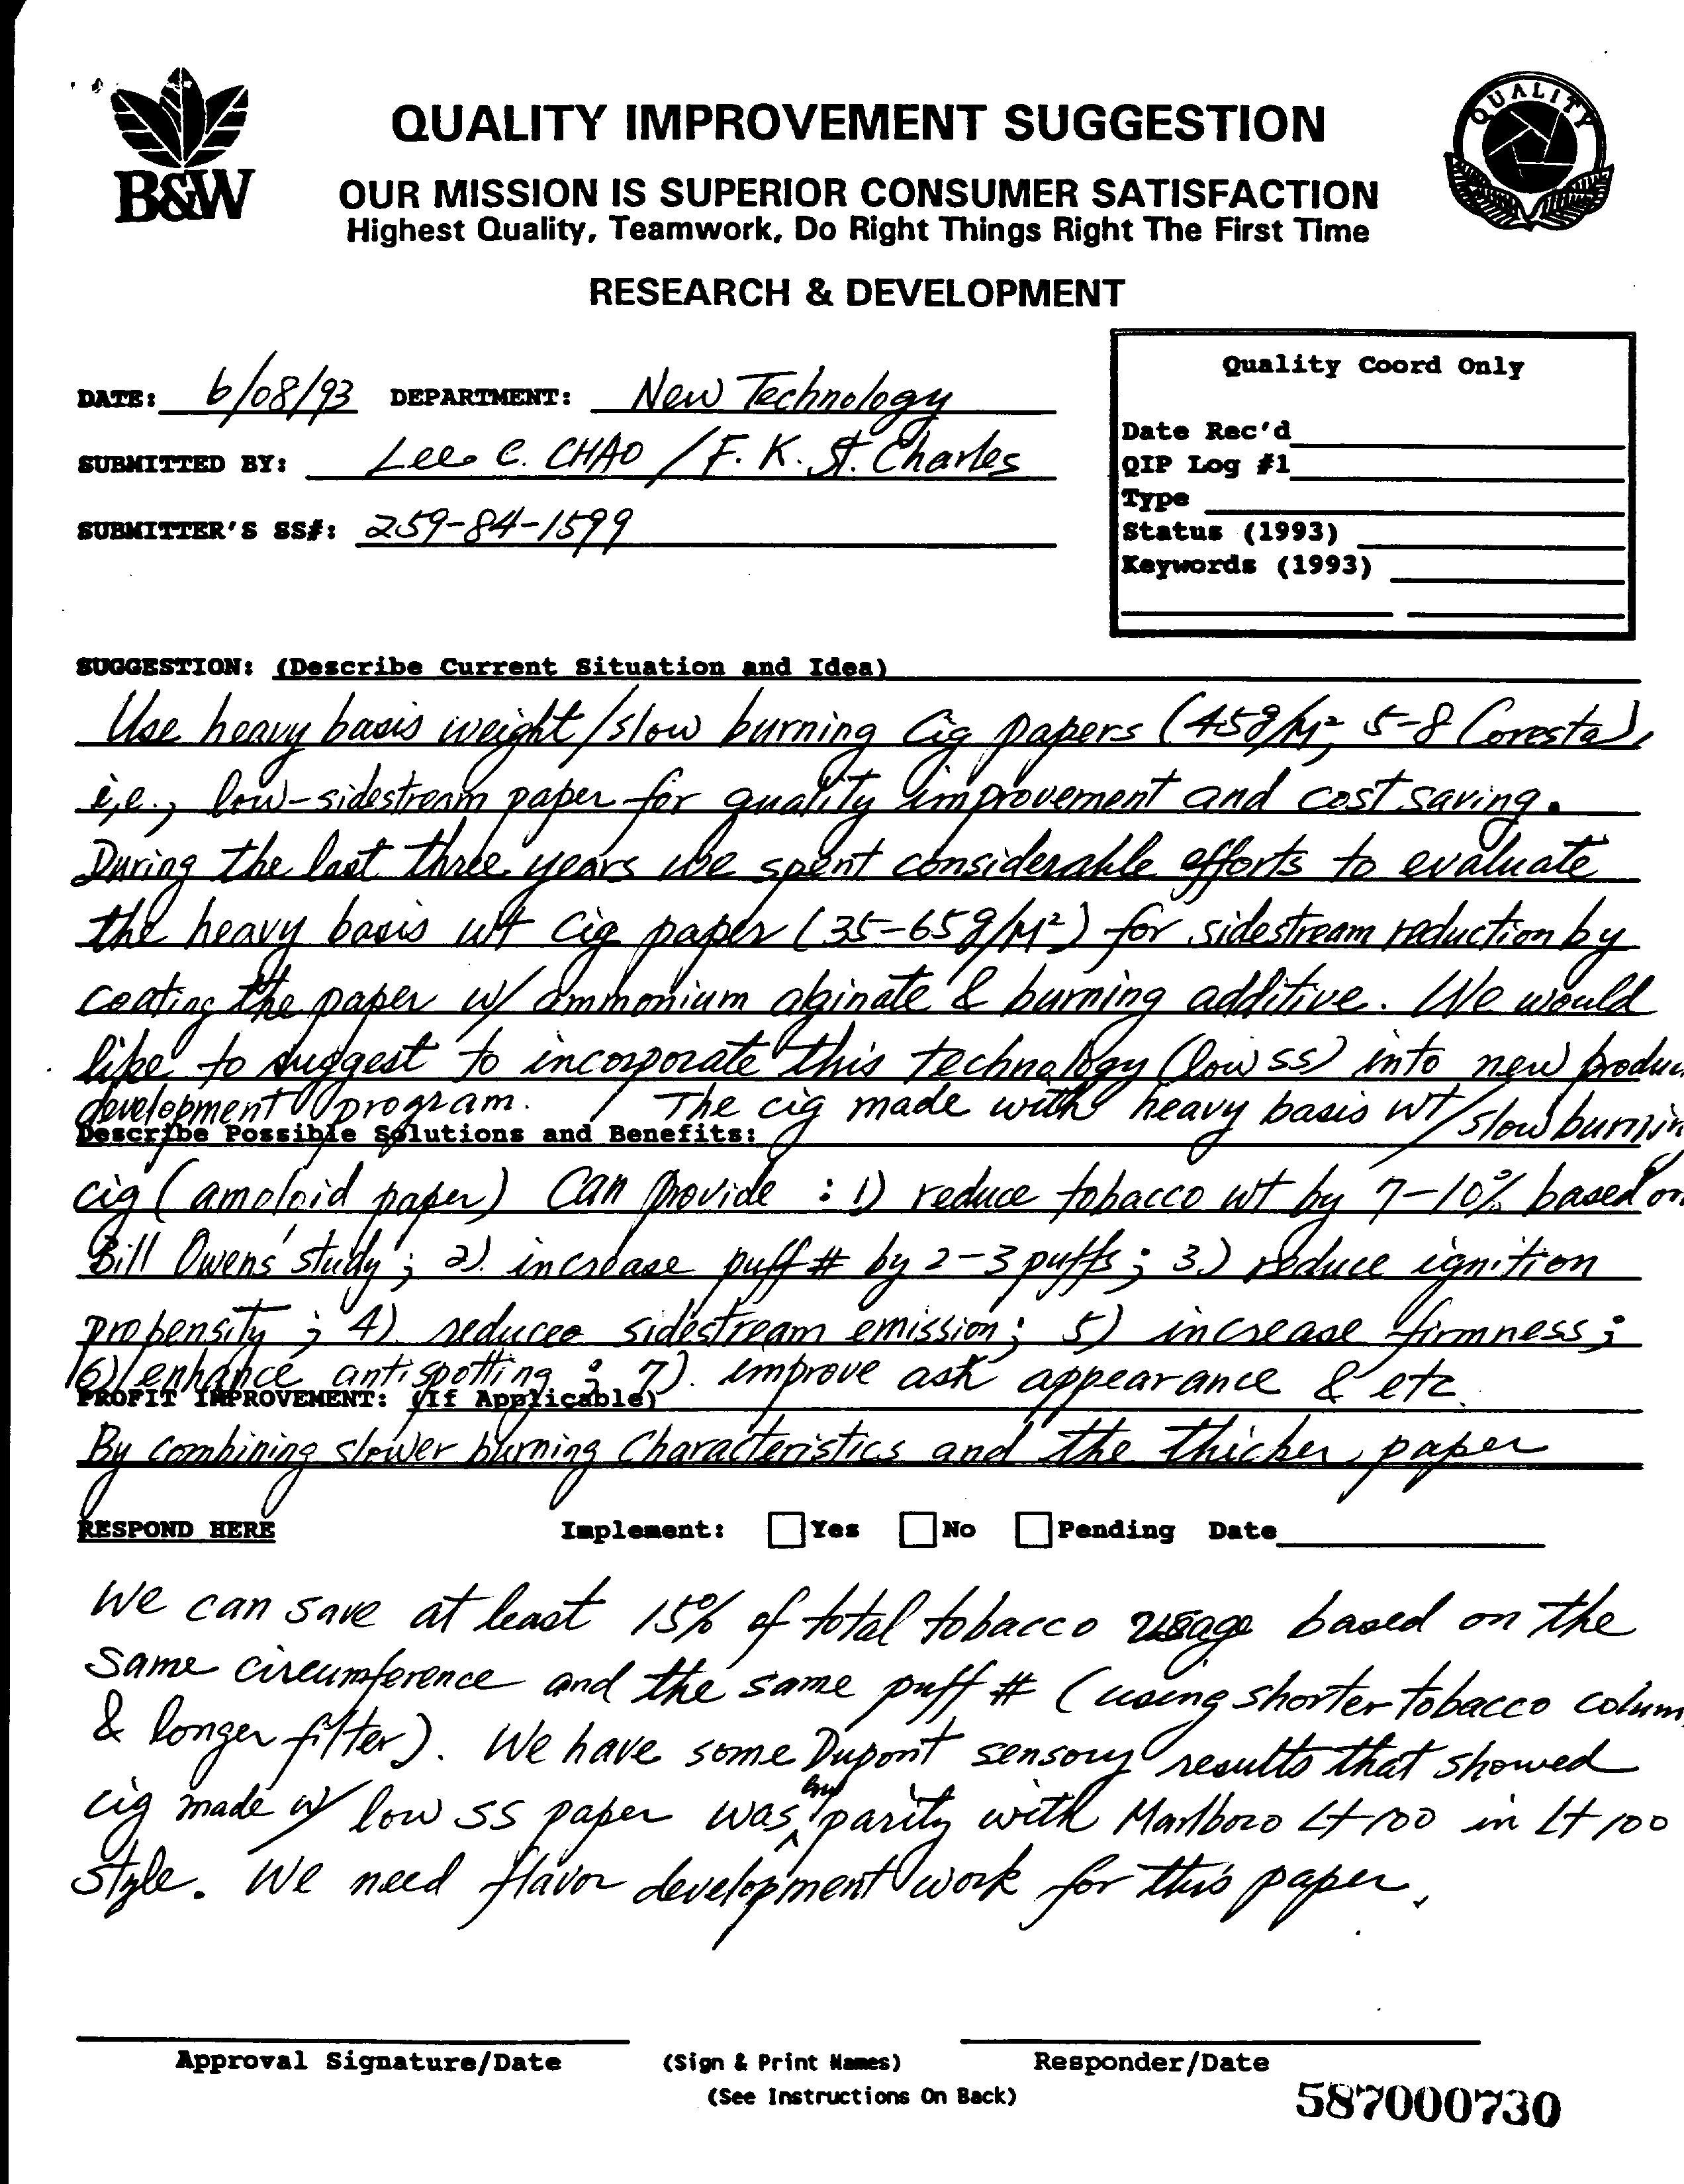 B&W
QUALITY
QUALITY IMPROVEMENT SUGGESTION
OUR MISSION IS SUPERIOR CONSUMER SATISFACTION
Highest Quality, Teamwork, Do Right Things Right The First Time
RESEARCH & DEVELOPMENT
DATE: 6/08/93 DEPARTMENT: New Technology
SUBMITTED BY: Lee C. CHAO / F. K. St. Charles
SUBMITTER'S SS#: 259-84-1599
Quality Coord Only
Date Rec'd
QIP Log #1
Type
Status (1993)
Keywords (1993)
SUGGESTION: (Describe Current Situation and Idea)
Use heavy basis weight/slow burning Cig papers (45g/M², 5-8 Coresta),
i,e., low-sidestream paper for quality improvement and cost saving.
During the last three years we spent considerable efforts to evaluate
the heavy basis wt cig paper (35-65g/M²) for sidestream reduction by
coating the paper w/ ammonium alginate & burning additive. We would
like to suggest to incorporate this technology (low SS) into new produc
development program. The cig made with heavy basis wt/slow burnin
Describe Possible Solutions and Benefits:
cig (amoloid paper) Can provide : 1) reduce tobacco wt by 7-10% based on
Bill Owens' study; 2). increase puff # by 2-3 puffs; 3.) reduce ignition
propensity; 4) reduces sidestream emission; 5) increase firmness;
6) enhance antispotting; 7). improve ash appearance & etc.
PROFIT IMPROVEMENT: (If Applicable)
By combining slower burning Characteristics and the thicker paper
RESPOND HERE Implement: Yes No Pending Date
We can save at least 15% of total tobacco usage based on the
Same circumference and the same puff # (using shorter tobacco colum
& longer filter). We have some Dupont sensory results that showed
cig made w/ low SS paper was parity with Marlboro Lt 100 in Lt 100
Style. We need flavor development work for this paper.
Approval Signature/Date (Sign & Print Names) Responder/Date
(See Instructions On Back)
587000730